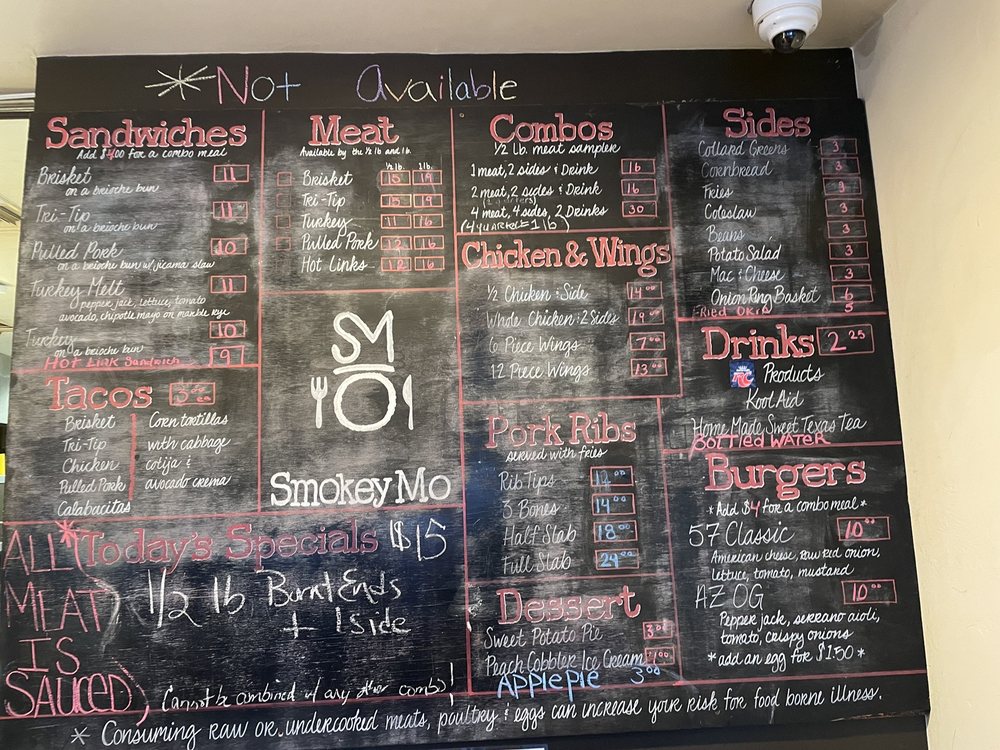 *Not Available
Sandwiches
Add $4.00 for a combo meal
Brisket 11
on a brioche bun
Tri-Tip 11
on a brioche bun
Pulled Pork 10
on a brioche bun w/ jicama slaw
Turkey Melt 11
pepper jack, lettuce, tomato
avocado, chipotle mayo on marble rye
Turkey 10
on a brioche bun
HOT LINK Sandwich 9
Tacos
Brisket
Tri-Tip
Chicken
Pulled Pork
Calabacitas
Corn tortillas
with cabbage
cotija &
avocado crema
Meat
Available by the ½ lb and lb.
½ lb. 1 lb.
Brisket 15 19
Tri-Tip 15 19
Turkey 11 16
Pulled Pork 12 16
Hot Links 12 16
SMO
Smokey Mo
Combos
½ lb. meat sampler
1 meat, 2 sides & Drink 16
2 meat, 2 sides & Drink 16
4 meat, 4 sides, 2 Drinks 30
(4 quarters = 1 lb)
Chicken & Wings
½ Chicken & Side 14.00
Whole Chicken & 2 Sides 19.00
6 Piece Wings 7.00
12 Piece Wings 13.00
Pork Ribs
served with fries
Rib Tips 12.00
3 Bones 14.00
Half Slab 18.00
Full Slab 24.00
Dessert
Sweet Potato Pie 3.00
Peach Cobbler Ice Cream
APPLE PIE 3.00
Sides
Collard Greens 3
Cornbread 3
Fries 3
Coleslaw 3
Beans 3
Potato Salad 3
Mac & Cheese 3
Onion Ring Basket 6
FRied OKra 5
Drinks 2.25
RC Products
Kool Aid
Home Made Sweet Texas Tea
BOTTLED WATER
Burgers
*Add $4 for a combo meal*
57 Classic 10.00
American cheese, raw red onion,
lettuce, tomato, mustard
AZ OG 10.00
Pepper jack, serrano aioli,
tomato, crispy onions
*add an egg for $1.50*
ALL
MEAT
IS
SAUCED
*Today's Specials $15
1/2 lb Burnt Ends
+ 1 side
Cannot be combined w/ any other combo!
* Consuming raw or undercooked meats, poultry & eggs can increase your risk for food borne illness.